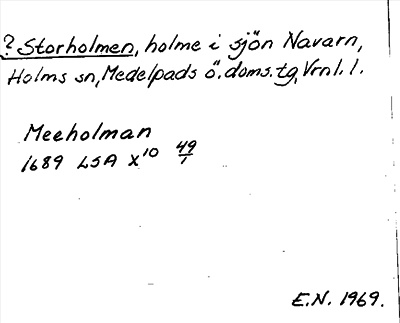 ? Storholmen, holme i sjön Navarn,
Holms sn, Medelpads ö. doms. tg, Vrnl. l.
Meeholman
1689 LSA X10 49/1
E.N. 1969.